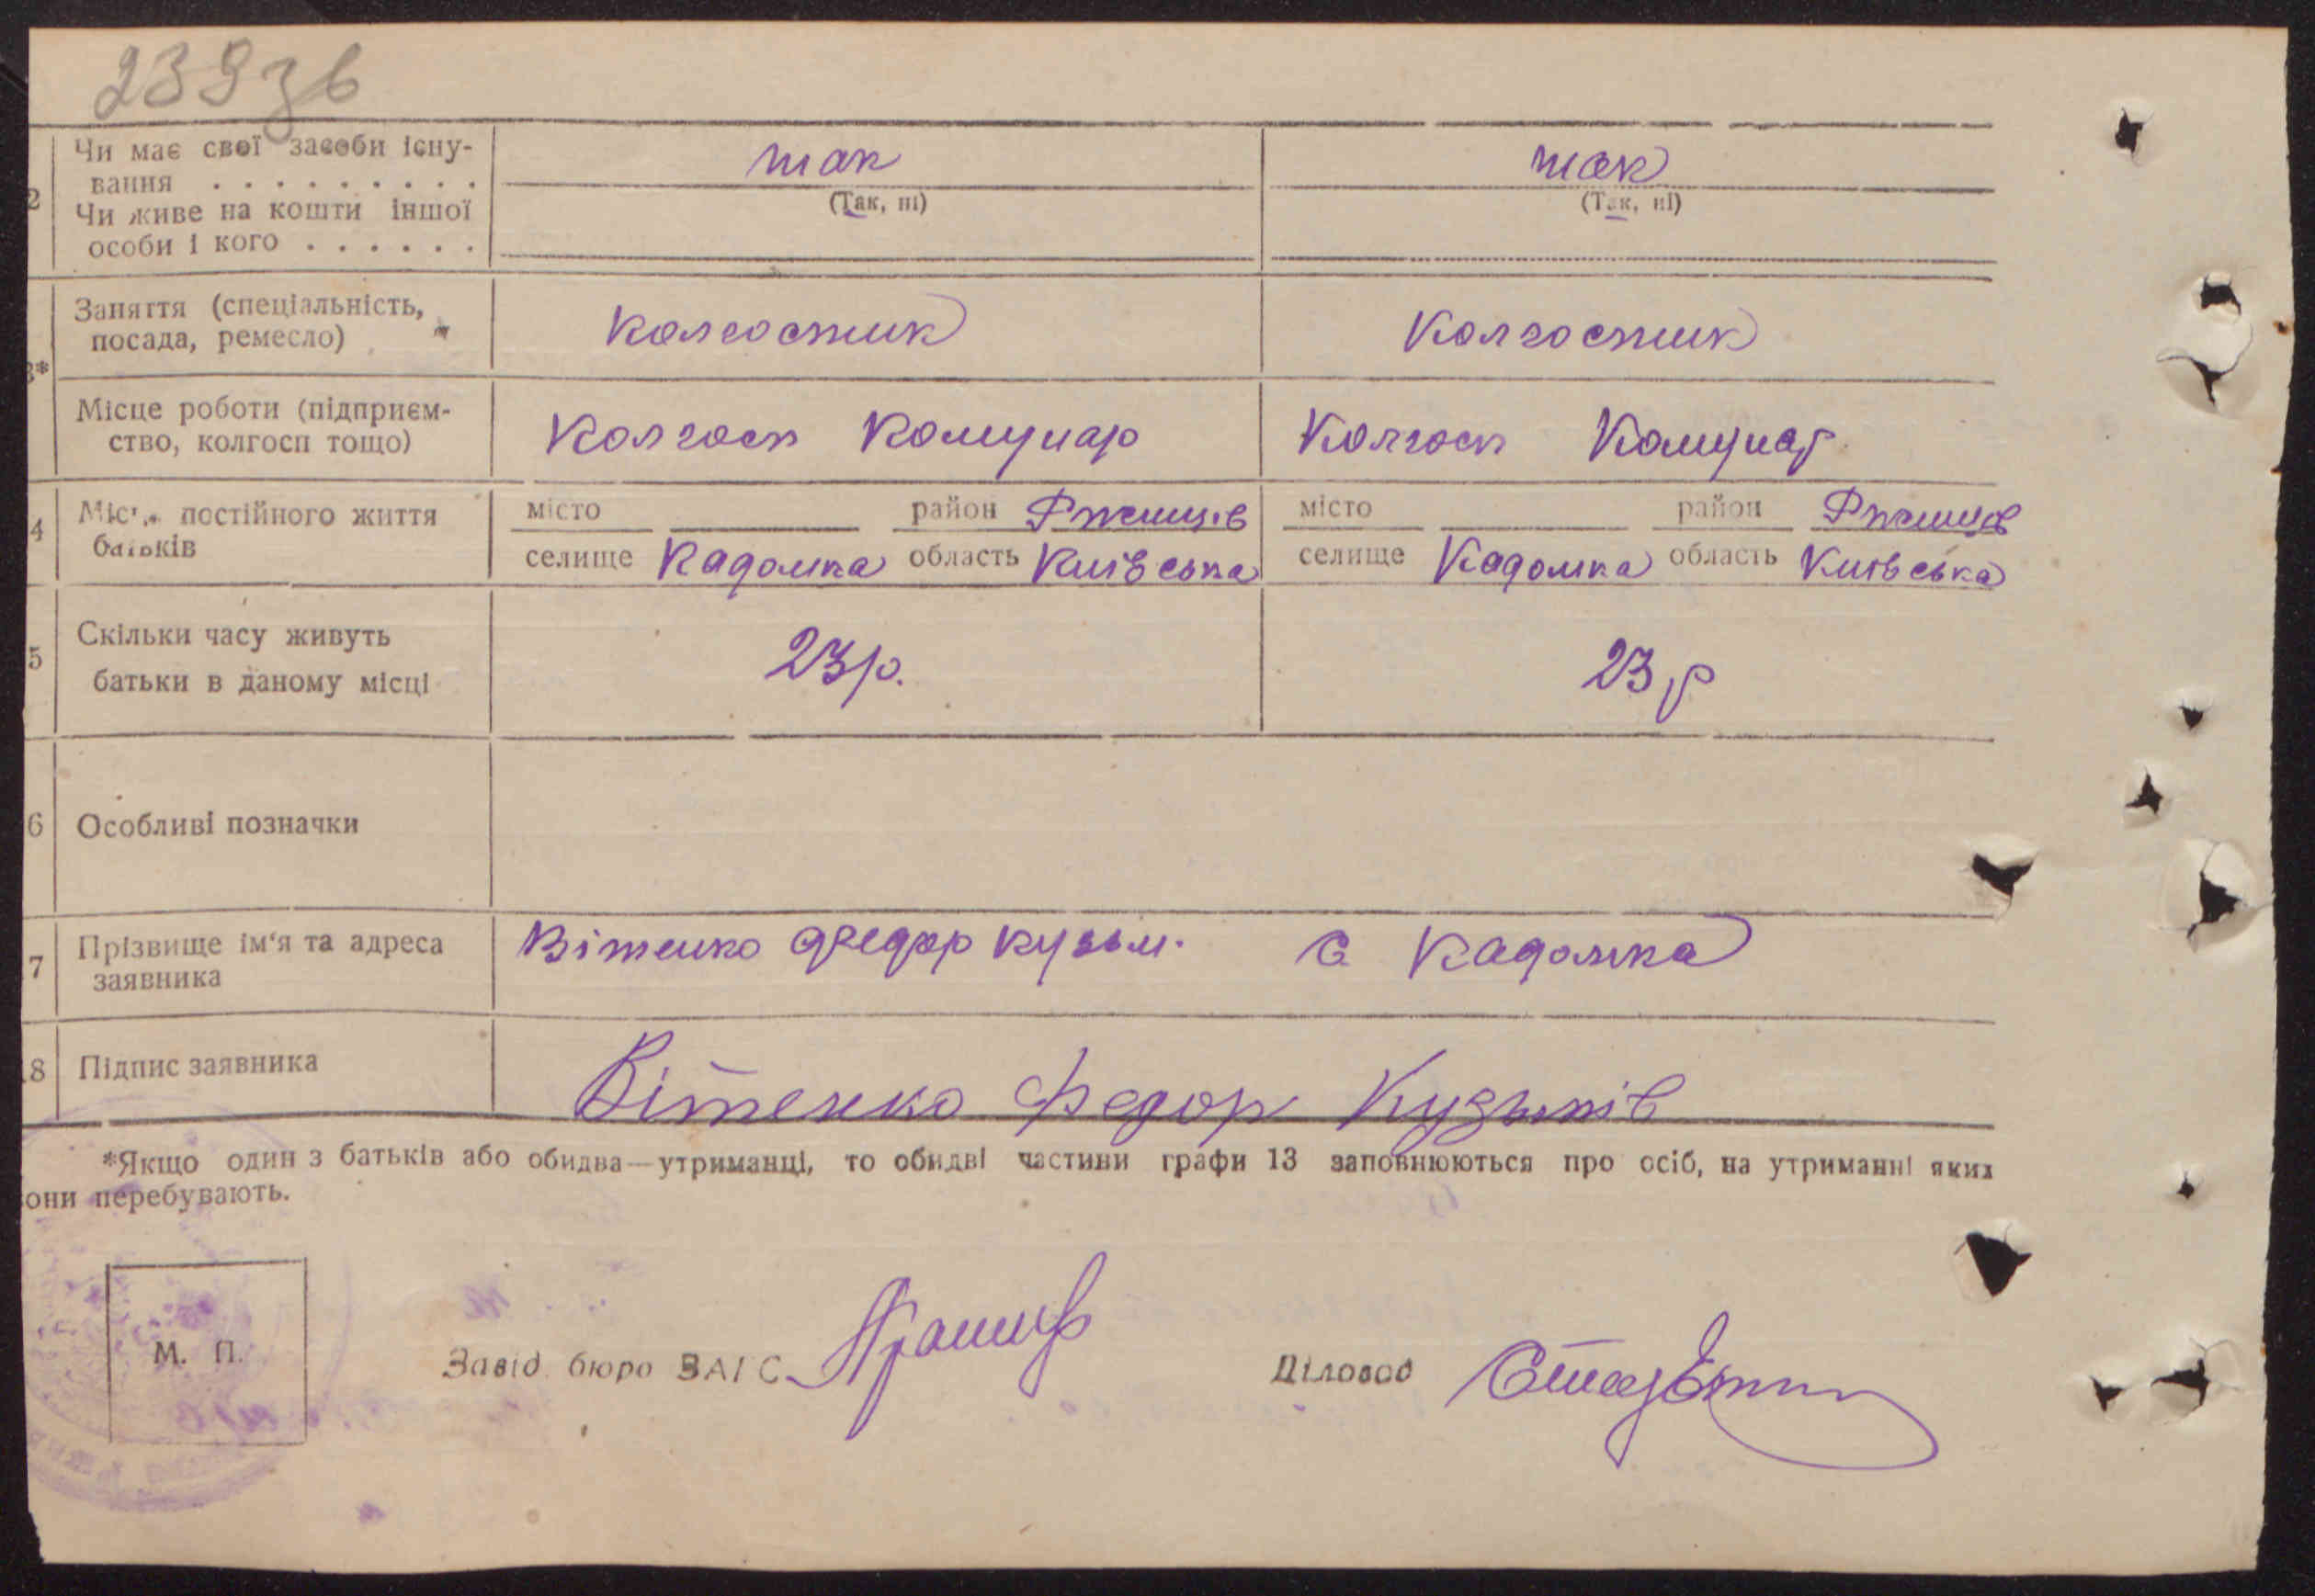 239зв
2 Чи має свої засоби існу- так так
вання . . . . . . . . . (Так, ні) (Так, ні)
Чи живе на кошти іншої
особи і кого . . . . . .
3* Заняття (спеціальність, колгоспник колгоспник
посада, ремесло)
Місце роботи (підприєм- Колгосп Комунар Колгосп Комунар
ство, колгосп тощо)
4 Місце постійного життя місто район Ржищів місто район Ржищів
батьків селище Кадомка область Київська селище Кадомка область Київська
5 Скільки часу живуть 23р. 23р
батьки в даному місці
6 Особливі позначки
7 Прізвище ім'я та адреса Вітенко Федор Кузьм. с Кадомка
заявника
18 Підпис заявника Вітенко Федор Кузьмів
*Якщо один з батьків або обидва—утриманці, то обидві частини графи 13 заповнюються про осіб, на утриманні яких
вони перебувають.
М. П.
Завід. бюро ЗАГС Діловод